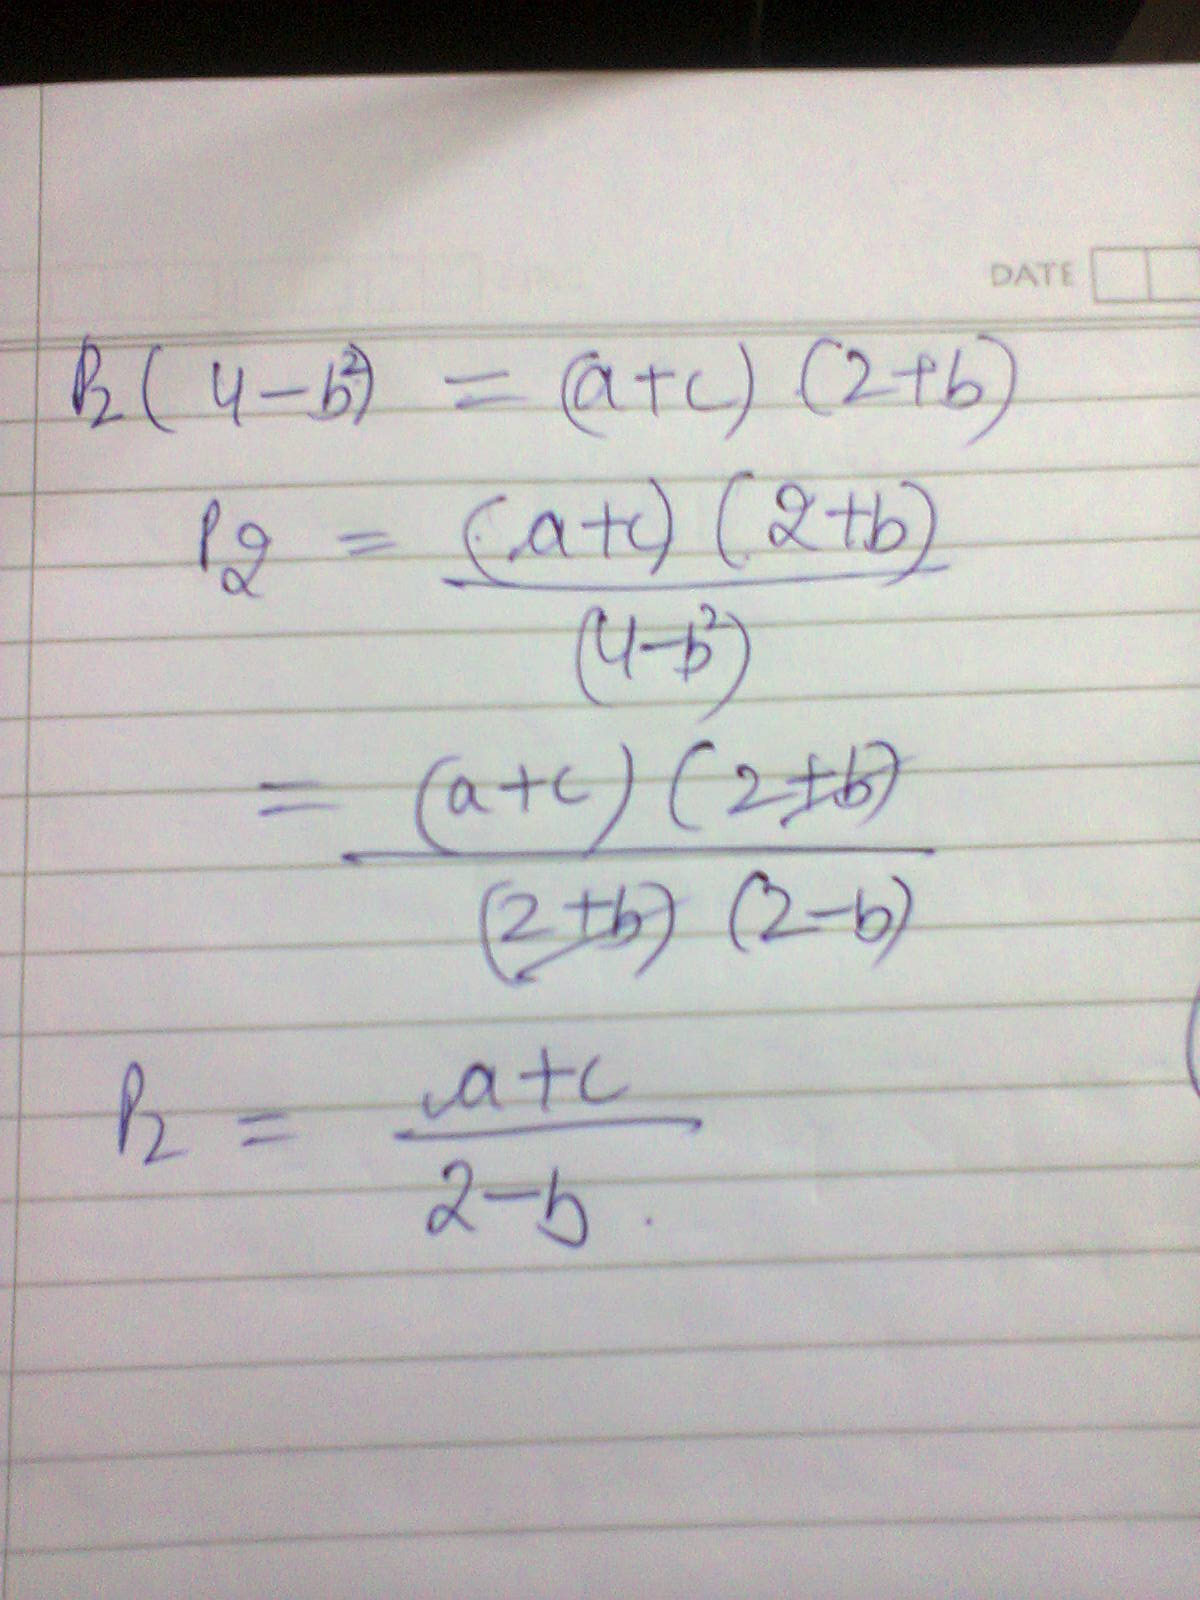 DATE
P₂ ( 4 - b²) = (a+c) (2+b)
P₂ = (a+c) (2+b)
(4-b²)
= (a+c) (2+b)
(2+b) (2-b)
P₂ = a+c
2-b .